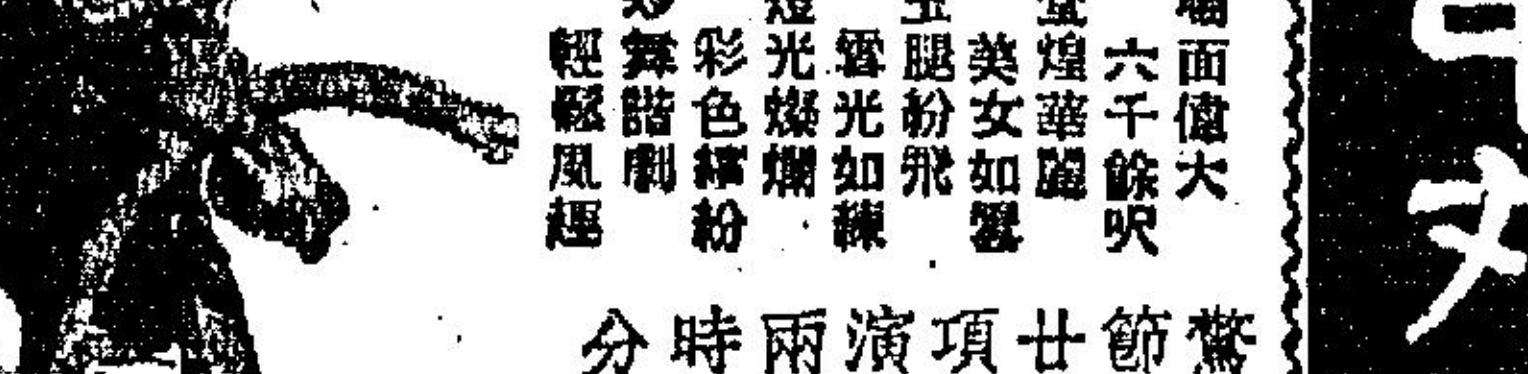 面偉大
六千餘呎
煌華麗
美女如雲
玉腿粉飛
雪光如練
燈光燦爛
彩色繽紛
舞諧劇
輕鬆風趣
節廿項演兩時分